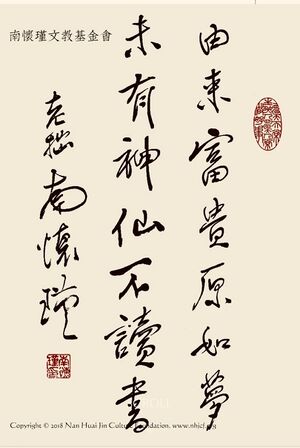 南懷瑾文教基金會
由來富貴原如夢
未有神仙不讀書
老拙南懷瑾
Copyright © 2018 Nan Huai Jin Culture Foundation. www.nhjcf.org